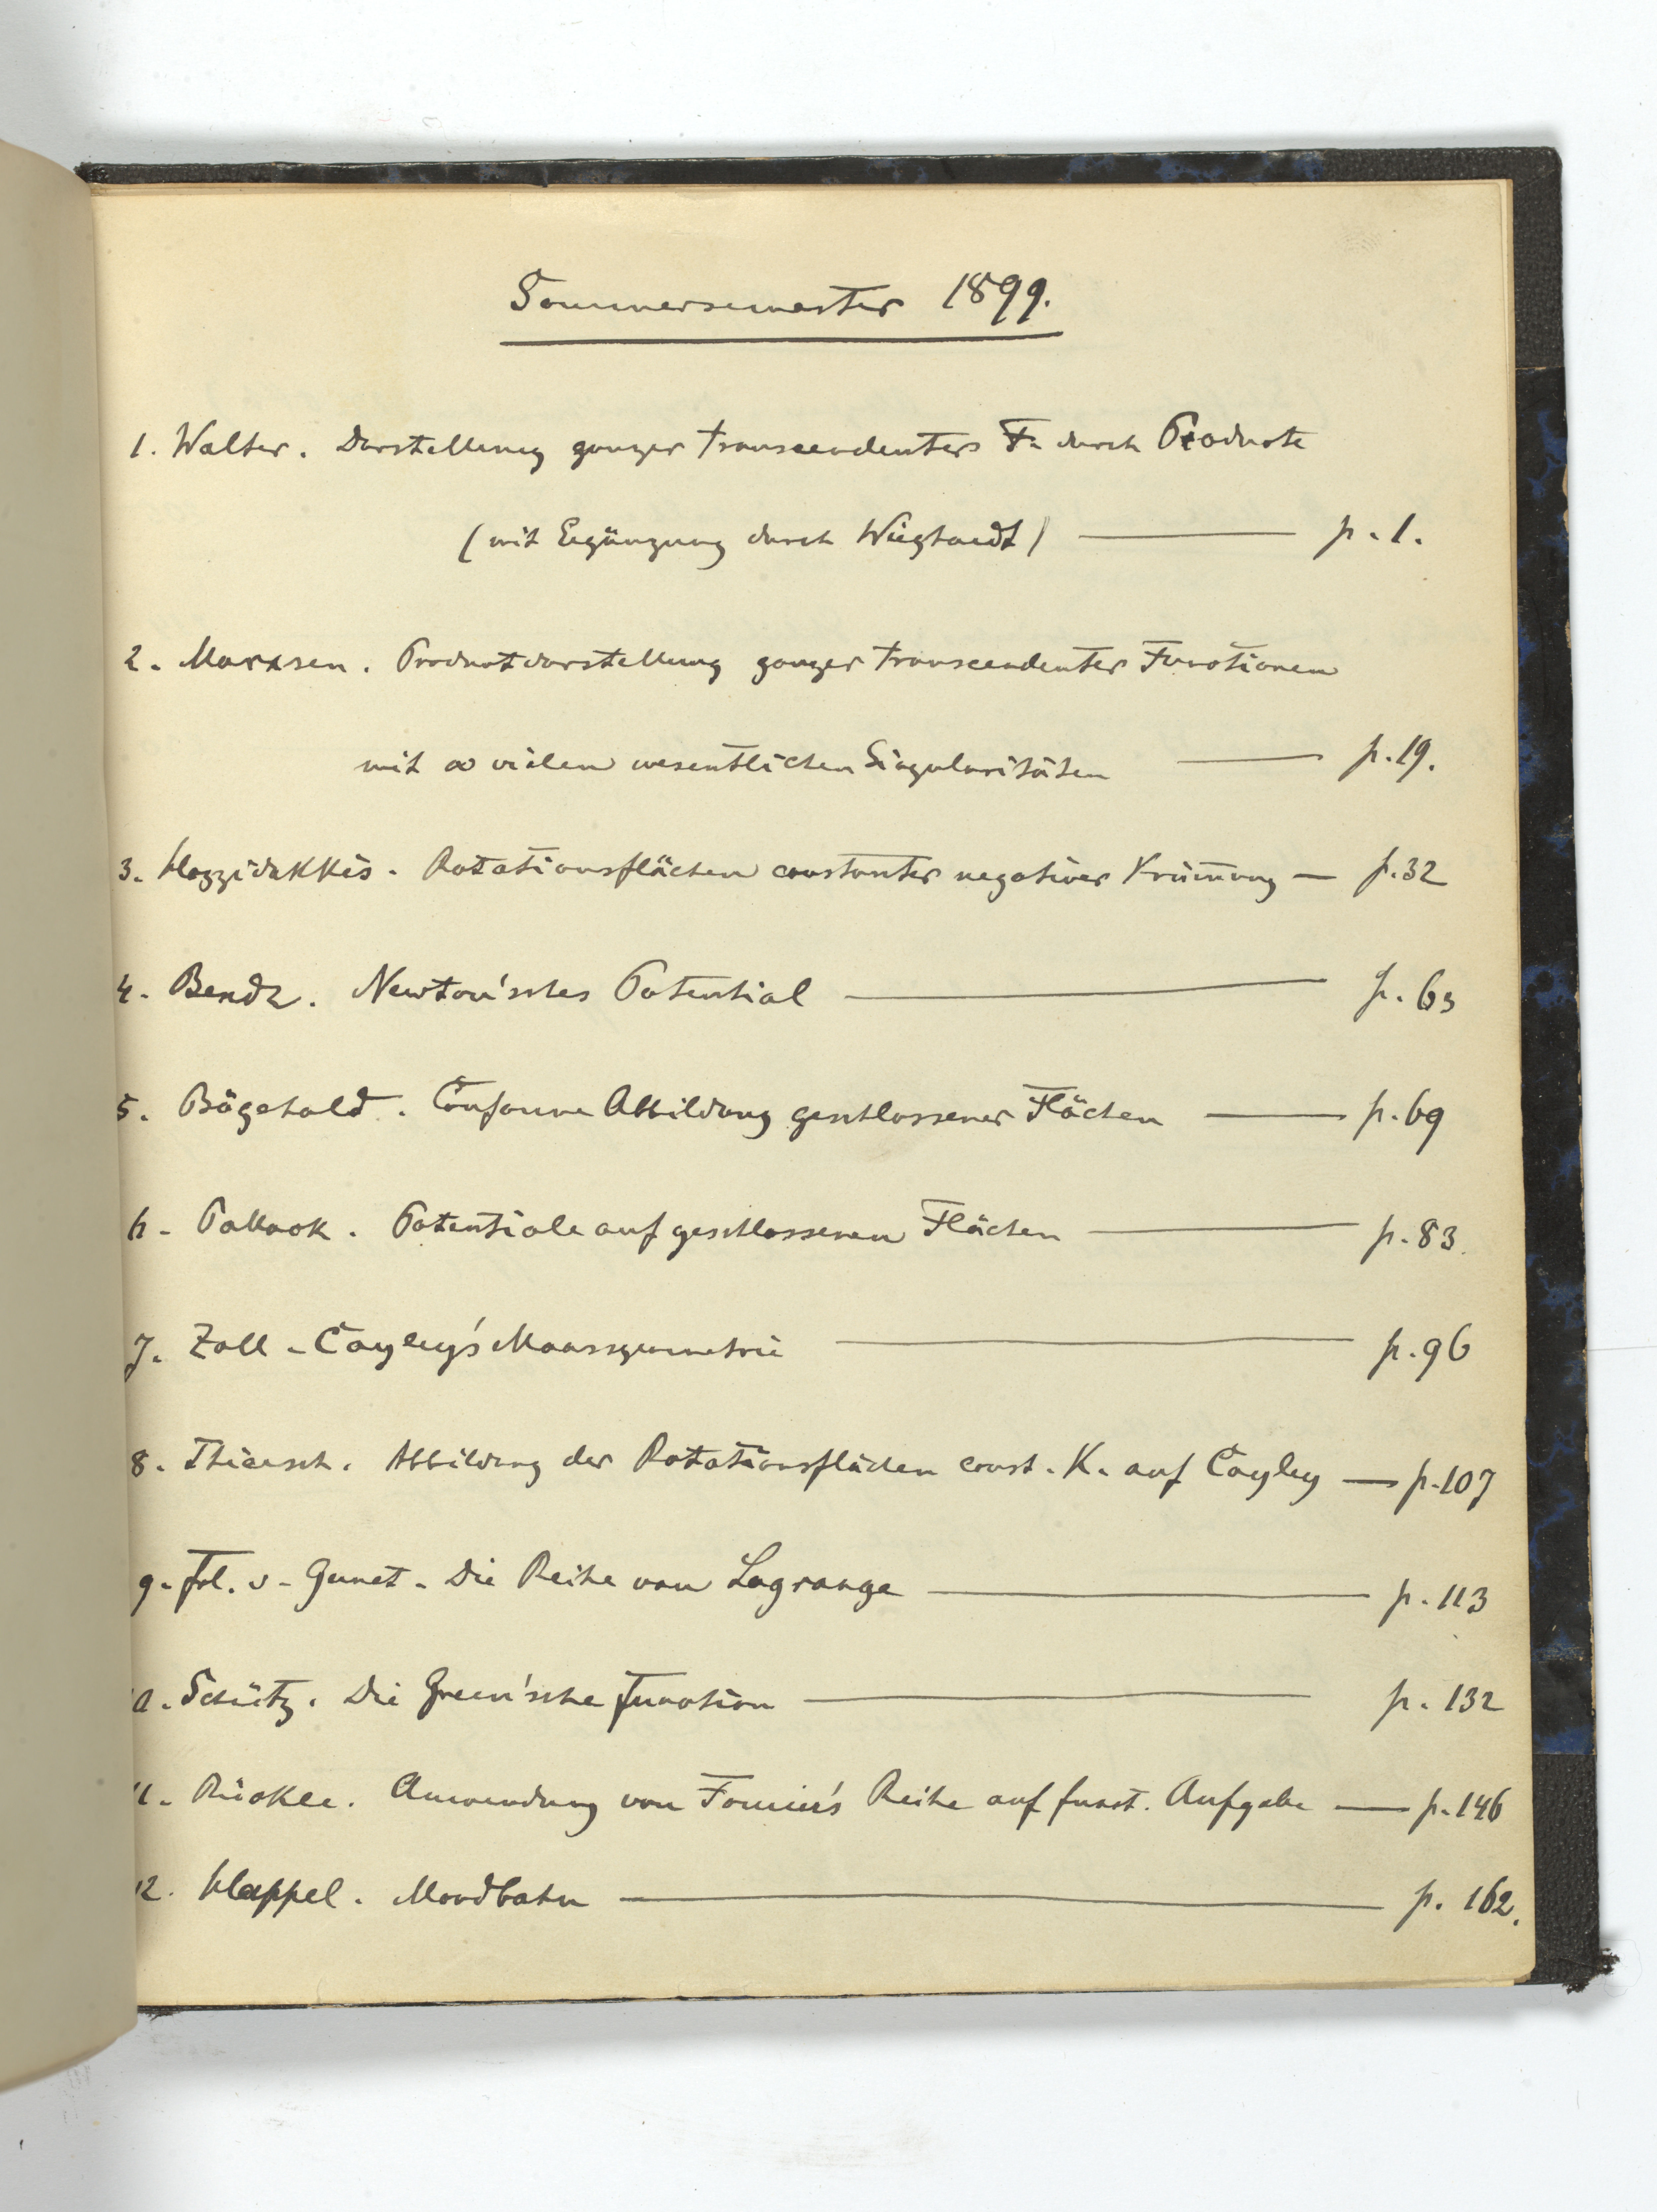 Sommersemester 1899.
1. Walter. Darstellung ganzer transcendenter F. durch Producte
(mit Ergänzung durch Wieghardt) — p. 1.
2. Marxsen. Productdarstellung ganzer transcendenter Functionen
mit ∞ vielen wesentlichen Singularitäten — p. 19.
3. Hazzidakkis. Rotationsflächen constanter negativer Krümmung — p. 32
4. Bendz. Newton'sches Potential — p. 63
5. Bögehold. Conforme Abbildung geschlossener Flächen — p. 69
6. Pollack. Potentiale auf geschlossenen Flächen — p. 83.
7. Zoll. Cayley's Maassgeometrie — p. 96
8. Thiersch. Abbildung der Rotationsflächen const. K. auf Cayley — p. 107
9. Frl. v. Gernet. Die Reihe von Lagrange — p. 113
10. Schütz. Die Green'sche Function — p. 132
11. Rückle. Anwendung von Fourier's Reihe auf funct. Aufgabe — p. 146
12. Happel. Mondbahn — p. 162.